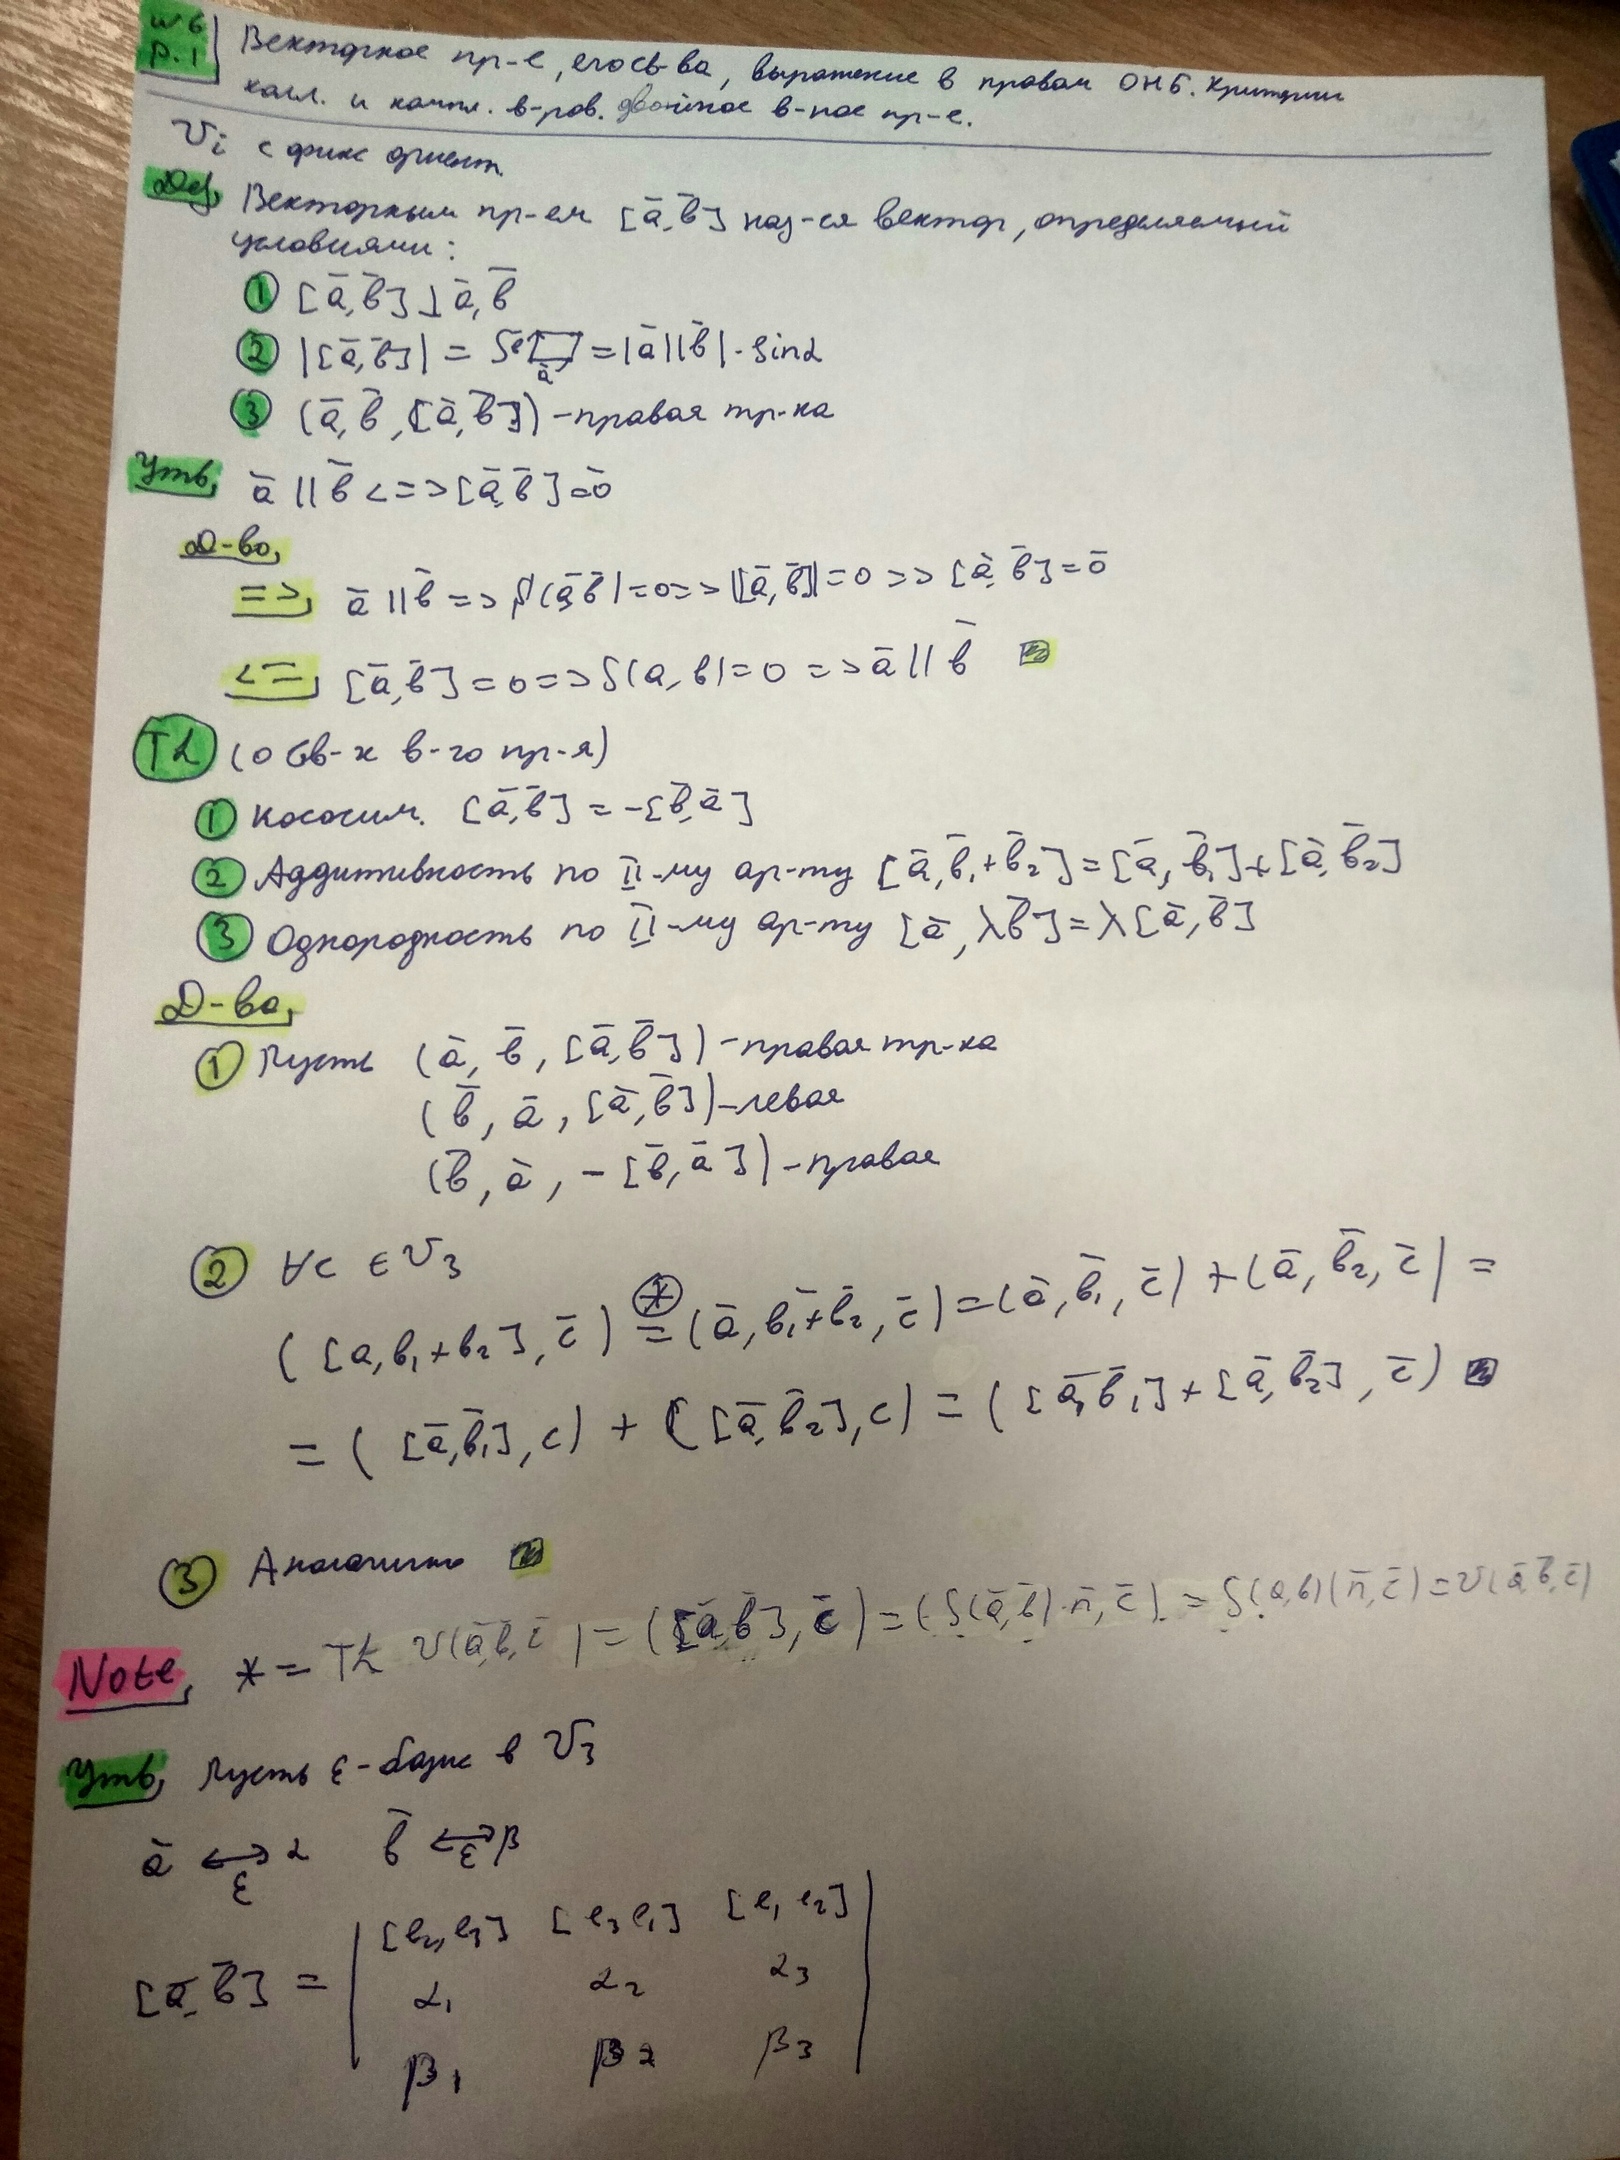 №6 р.1
Векторное пр-е, его св-ва, выражение в правом ОНБ. Критерии
колл. и компл. в-ров. двойное в-ное пр-е.
V_i с фикс ориент.
Def, Векторным пр-ем [ā, b̄] наз-ся вектор, определяемый
условиями:
① [ā, b̄] ⊥ ā, b̄
② |[ā, b̄]| = S = |ā||b̄|·sinα
③ (ā, b̄, [ā, b̄]) - правая тр-ка
Утв, ā || b̄ <=> [ā, b̄] = ō
Д-во,
=>, ā || b̄ => S(ā, b̄) = 0 => |[ā, b̄]| = 0 => [ā, b̄] = ō
<=, [ā, b̄] = 0 => S(a, b) = 0 => ā || b̄
Th (о св-х в-го пр-я)
① Кососим. [ā, b̄] = -[b̄, ā]
② Аддитивность по II-му ар-ту [ā, b̄₁ + b̄₂] = [ā, b̄₁] + [ā, b̄₂]
③ Однородность по II-му ар-ту [ā, λb̄] = λ[ā, b̄]
Д-во,
① Пусть (ā, b̄, [ā, b̄]) - правая тр-ка
(b̄, ā, [ā, b̄]) - левая
(b̄, ā, -[b̄, ā]) - правая
② ∀c ∈ V₃
([a, b₁ + b₂], c̄) =^(*) (ā, b̄₁ + b̄₂, c̄) = (ā, b̄₁, c̄) + (ā, b̄₂, c̄) =
= ([ā, b̄₁], c) + ([ā, b̄₂], c) = ([ā, b̄₁] + [ā, b̄₂], c̄)
③ Аналогично
Note, * = Th V(ā, b̄, c̄) = ([ā, b̄], c̄) = (S(ā, b̄)·n̄, c̄) = S(a, b)(n̄, c̄) = V(ā, b̄, c̄)
Утв, Пусть ε - базис в V₃
ā ⟷_ε α b̄ ⟷_ε β
[ā, b̄] = | [e₂, e₃] [e₃ e₁] [e₁ e₂] |
α₁ α₂ α₃
β₁ β₂ β₃